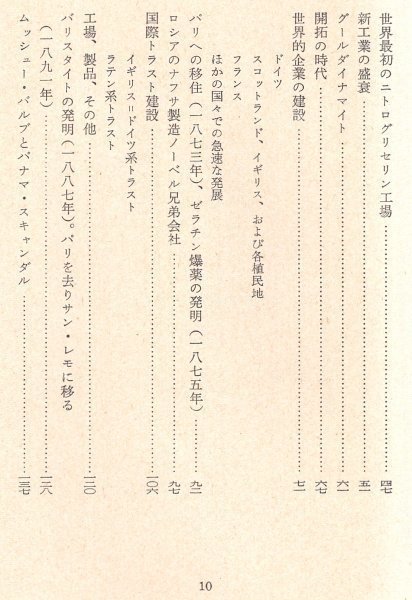 世界最初のニトログリセリン工場……四七
新工業の盛衰……五一
グールダイナマイト……六一
開拓の時代……六七
世界的企業の建設……七一
ドイツ
スコットランド、イギリス、および各植民地
フランス
ほかの国々での急速な発展
パリへの移住（一八七三年）、ゼラチン爆薬の発明（一八七五年）……九二
ロシアのナフサ製造ノーベル兄弟会社……九七
国際トラスト建設……一〇六
イギリス＝ドイツ系トラスト
ラテン系トラスト
工場、製品、その他……一二〇
バリスタイトの発明（一八八七年）。パリを去りサン・レモに移る
（一八九一年）……一二八
ムッシュー・バルブとパナマ・スキャンダル……一三七
10